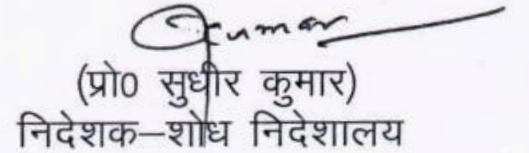 Kumar
(प्रो0 सुधीर कुमार)
निदेशक–शोध निदेशालय